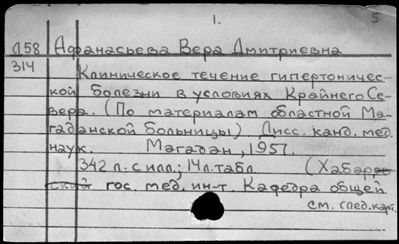 1. 5
Д58 Афанасьева Вера Дмитриевна
314 Клиническое течение гипертоничес-
кой болезни в условиях Крайнего Се-
вера. (По материалам областной Ма-
гаданской больницы) Дисс. канд. мед.
наук. Магадан, 1957.
342 л. с илл.; 14 л. табл. (Хабаров-
ский гос. мед. ин-т. Кафедра общей
см. след. карт.